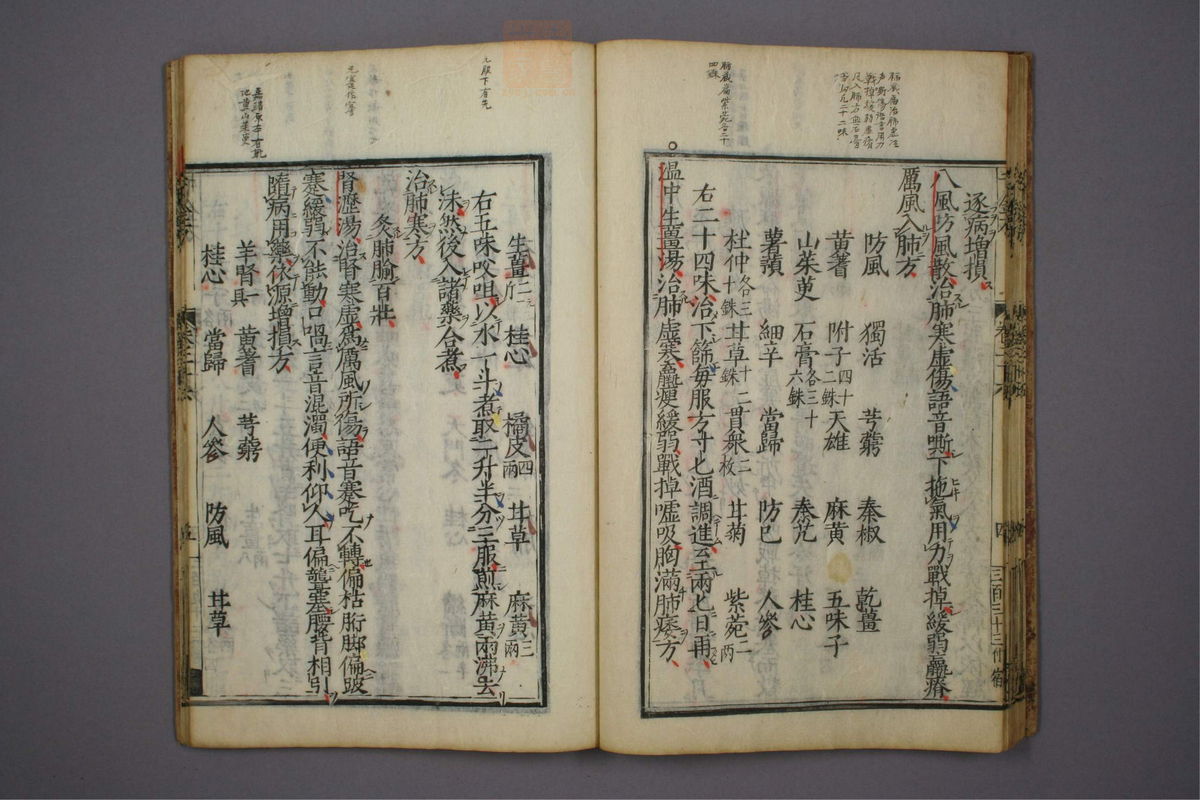 逐病增損
八風防風散治肺寒虛傷語音嘶下拖氣用力戰掉緩弱羸瘠
厲風入肺方
防風 獨活 芎藭 秦椒 乾薑
黃耆 附子四十二銖 天雄 麻黃 五味子
山茱萸 石膏各三十六銖 秦艽 桂心
薯蕷 細辛 當歸 防巳 人參
杜仲各三十銖 甘草十二銖 貫衆二枚 甘菊 紫菀二兩
右二十四味治下篩每服方寸匕酒調進至兩匕日再
溫中生薑湯治肺虛寒羸瘦緩弱戰掉噓吸胸滿肺痿方
四
三百三十三
生薑一斤 桂心 橘皮四兩 甘草 麻黃三兩
右五味㕮咀以水一斗煮取二升半分三服煎麻黃兩沸去
沫然後入諸藥合煮
治肺寒方
灸肺腧百壯
腎瀝湯治腎寒虛爲厲風所傷語音蹇吃不轉偏枯胻脚偏跛
蹇緩弱不能動口喎言音混濁便利仰人耳偏聾塞腰背相引
隨病用藥依源增損方
羊腎一具 黃耆 芎藭
桂心 當歸 人參 防風 甘草